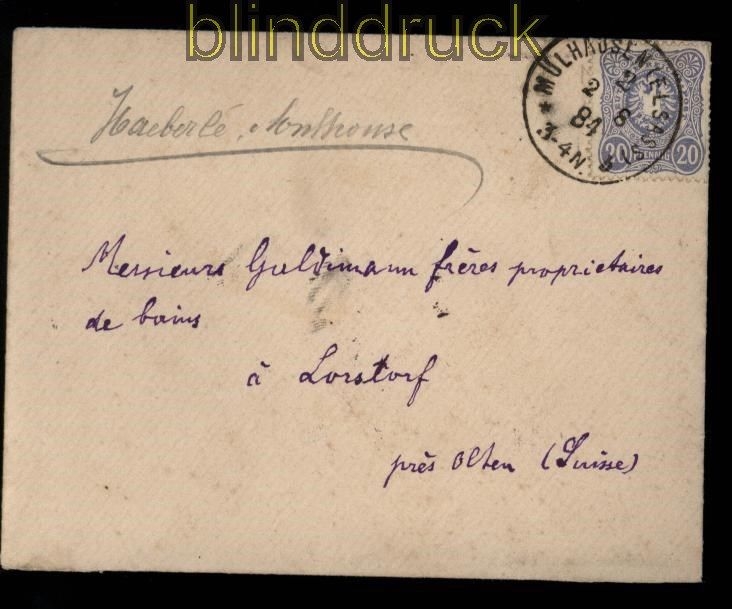 blinddruck
MÜLHAUSEN (ELSASS)
2 2
84 8
3-4N.
20 PFENNIG 20
Haeberlé, Mulhouse
Messieurs Guldimann frères propriétaires
de bains
à Lorstorf
près Olten (Suisse)